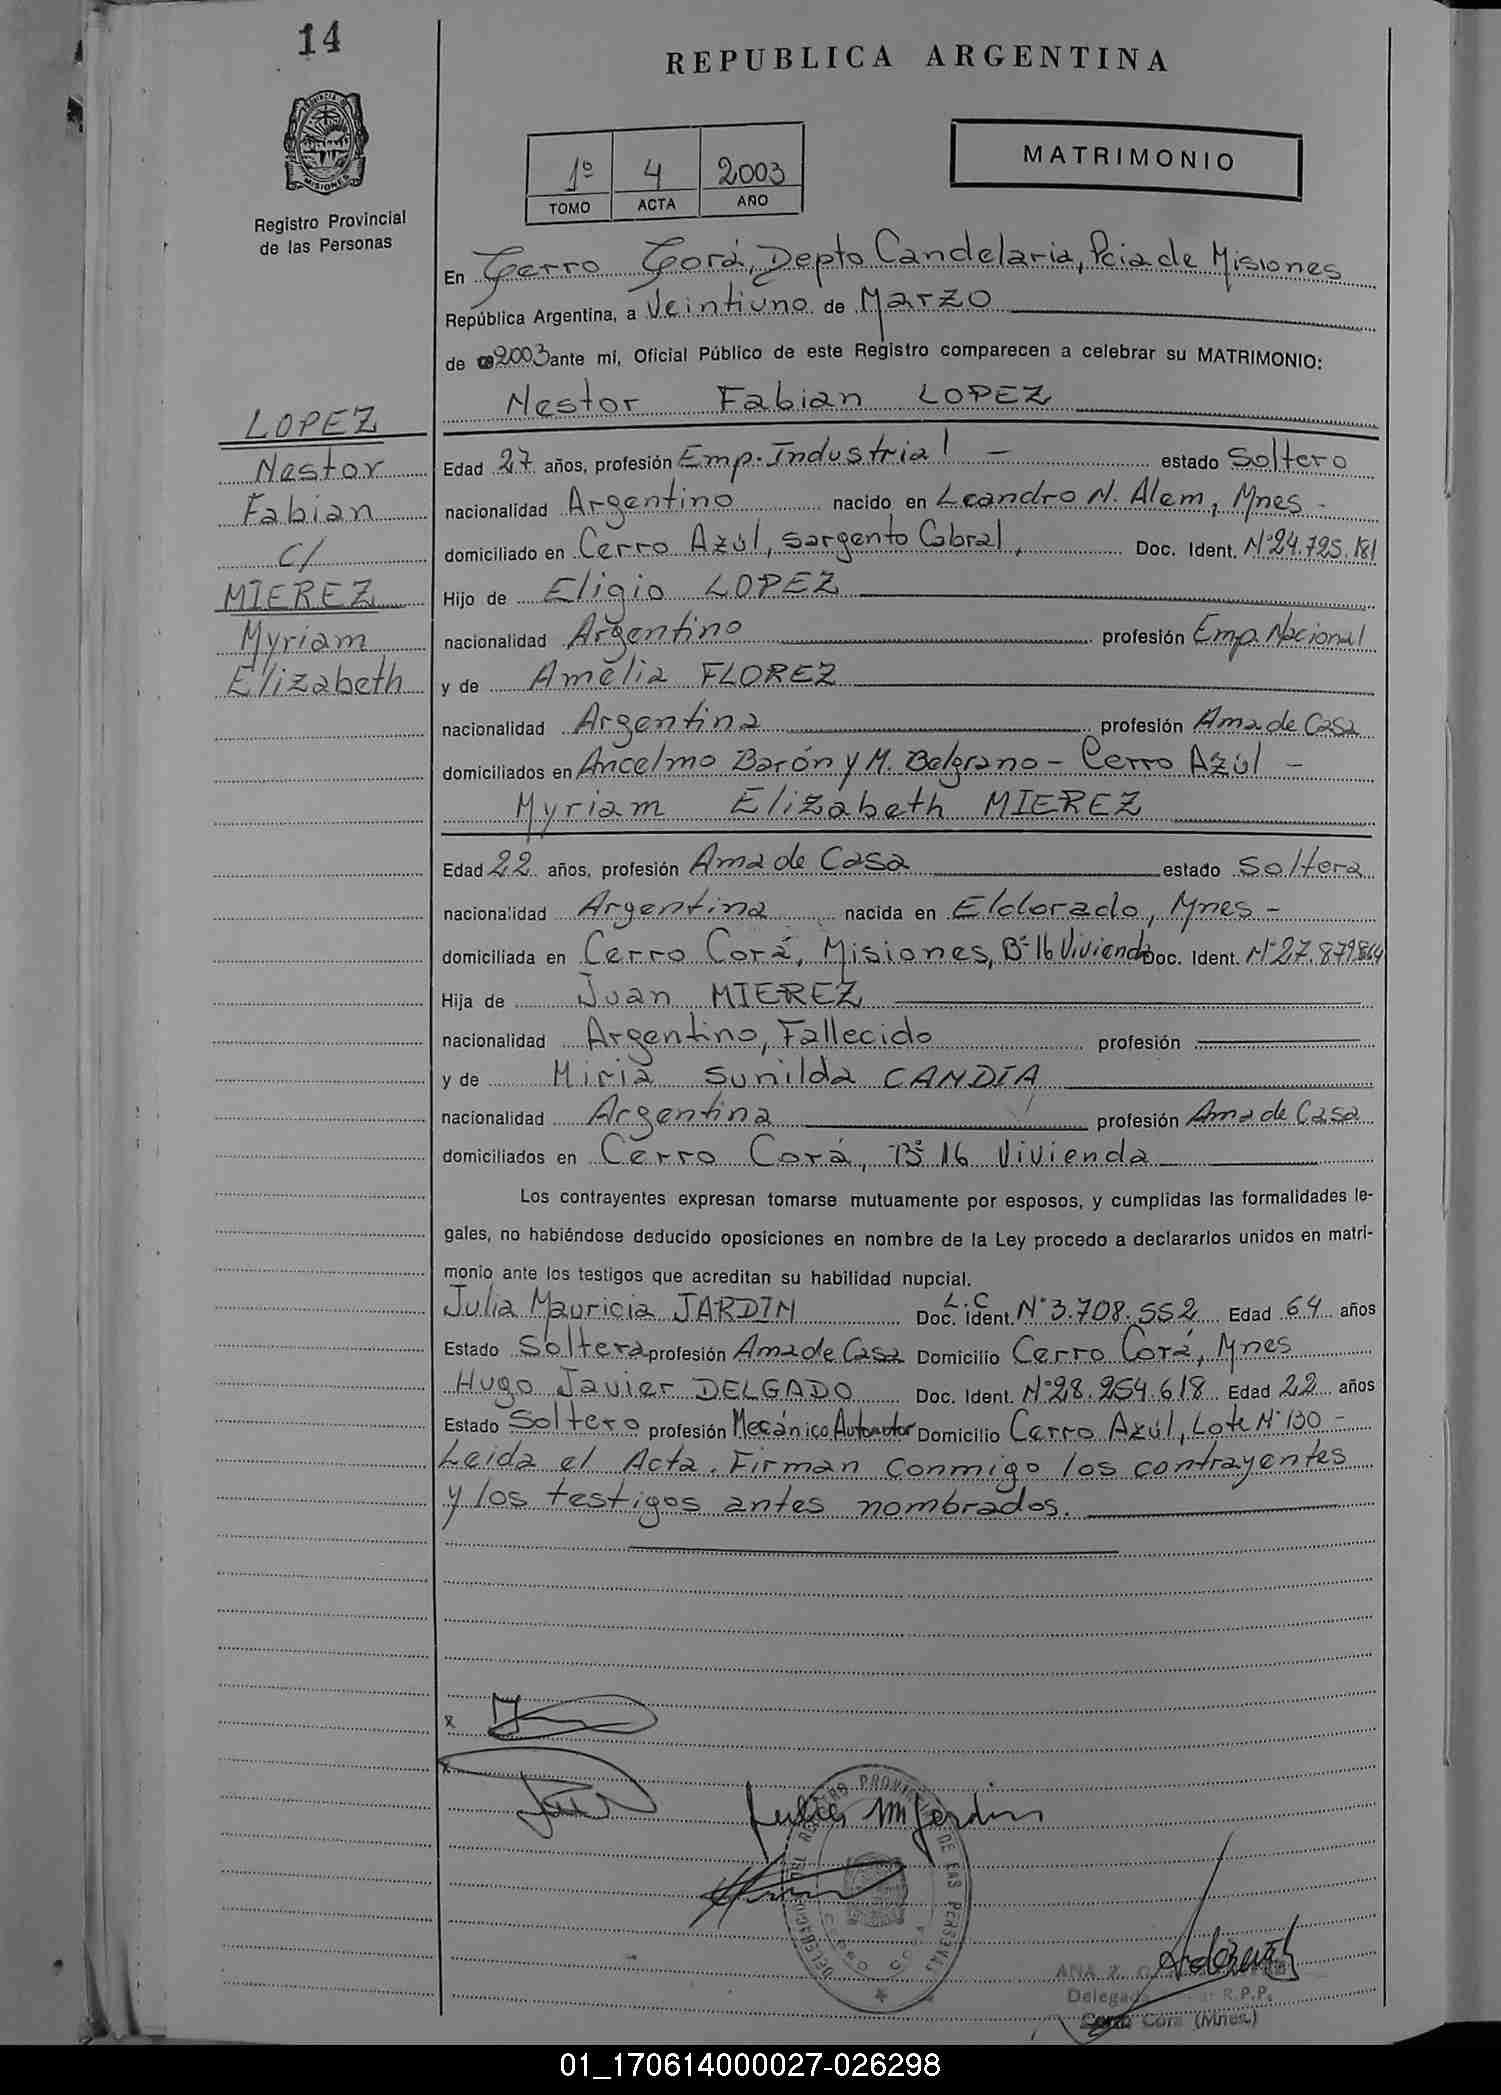 14
REPUBLICA ARGENTINA
PROVINCIA DE
MISIONES
Registro Provincial
de las Personas
1º 4 2003
TOMO ACTA AÑO
MATRIMONIO
En Cerro Corá, Depto Candelaria, Pcia de Misiones
República Argentina, a Veintiuno de Marzo
de 2003 ante mí, Oficial Público de este Registro comparecen a celebrar su MATRIMONIO:
Nestor Fabian LOPEZ
LOPEZ
Nestor
Fabian
C/
MIEREZ
Myriam
Elizabeth
Edad 27 años, profesión Emp. Industrial - estado Soltero
nacionalidad Argentino nacido en Leandro N. Alem, Mnes -
domiciliado en Cerro Azúl, Sargento Cabral, Doc. Ident. Nº24.725.181
Hijo de Eligio LOPEZ
nacionalidad Argentino profesión Emp. Nacional
y de Amelia FLOREZ
nacionalidad Argentina profesión Ama de Casa
domiciliados en Ancelmo Barón y M. Belgrano - Cerro Azúl -
Myriam Elizabeth MIEREZ
Edad 22 años, profesión Ama de Casa estado Soltera
nacionalidad Argentina nacida en Eldorado, Mnes -
domiciliada en Cerro Corá, Misiones, Bº 16 Vivienda Doc. Ident. Nº27.879.864
Hija de Juan MIEREZ
nacionalidad Argentino, Fallecido profesión
y de Miria Sunilda CANDIA
nacionalidad Argentina profesión Ama de Casa
domiciliados en Cerro Corá, Bº 16 Vivienda
Los contrayentes expresan tomarse mutuamente por esposos, y cumplidas las formalidades le-
gales, no habiéndose deducido oposiciones en nombre de la Ley procedo a declararlos unidos en matri-
monio ante los testigos que acreditan su habilidad nupcial.
Julia Mauricia JARDIN L.C Doc. Ident. Nº3.708.552 Edad 64 años
Estado Soltera profesión Ama de Casa Domicilio Cerro Corá, Mnes
Hugo Javier DELGADO Doc. Ident. Nº28.254.618 Edad 22 años
Estado Soltero profesión Mecánico Automotor Domicilio Cerro Azúl, Lote Nº 130 -
Leida el Acta. Firman conmigo los contrayentes
y los testigos antes nombrados.
x
x
Julia M Jardin
DELEGACION DEL REGISTRO PROVINCIAL DE LAS PERSONAS
CERRO CORA
ANA
Delegada R.P.P.
Cerro Corá (Mnes.)
01_170614000027-026298